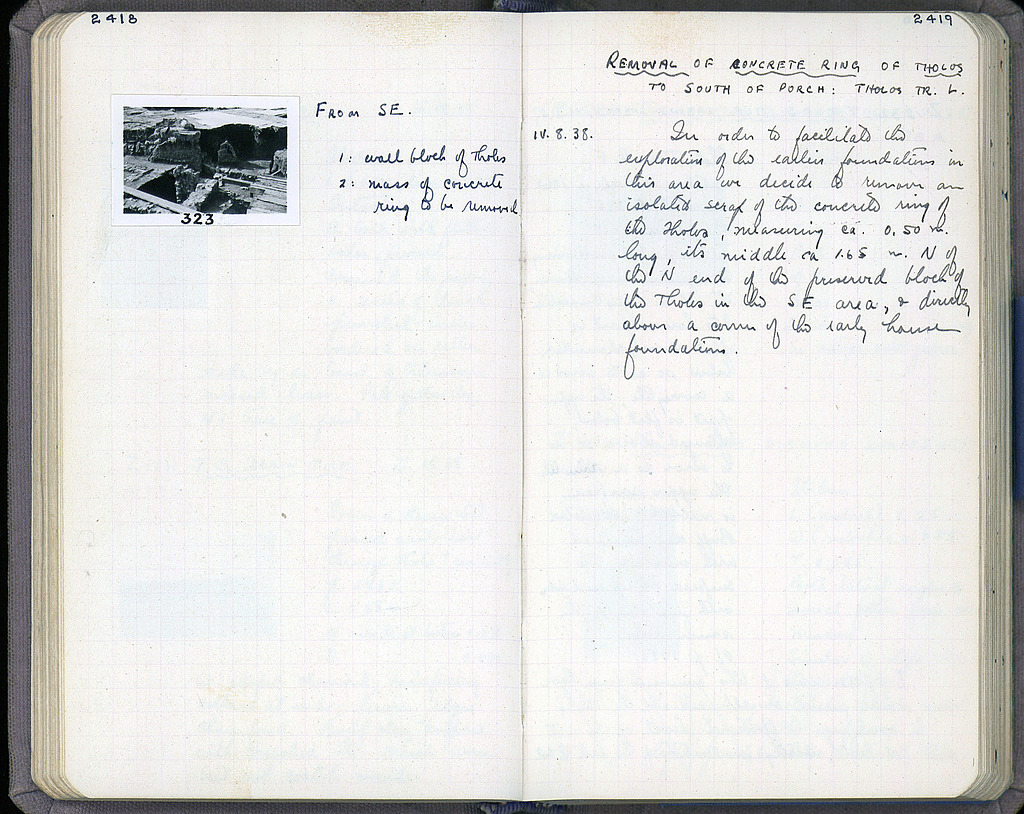 2418
FROM SE.
1: wall block of Tholos
2: mass of concrete
ring to be removed
323
2419
REMOVAL OF CONCRETE RING OF THOLOS
TO SOUTH OF PORCH: THOLOS TR. L.
IV. 8. 38. In order to facilitate the
exploration of the earlier foundations in
this area we decide to remove an
isolated scrap of the concrete ring of
the Tholos, measuring ca. 0.50 m.
long, its middle ca 1.65 m. N of
the N end of the preserved block of
the Tholos in the SE area, & directly
above a corner of the early house
foundations.